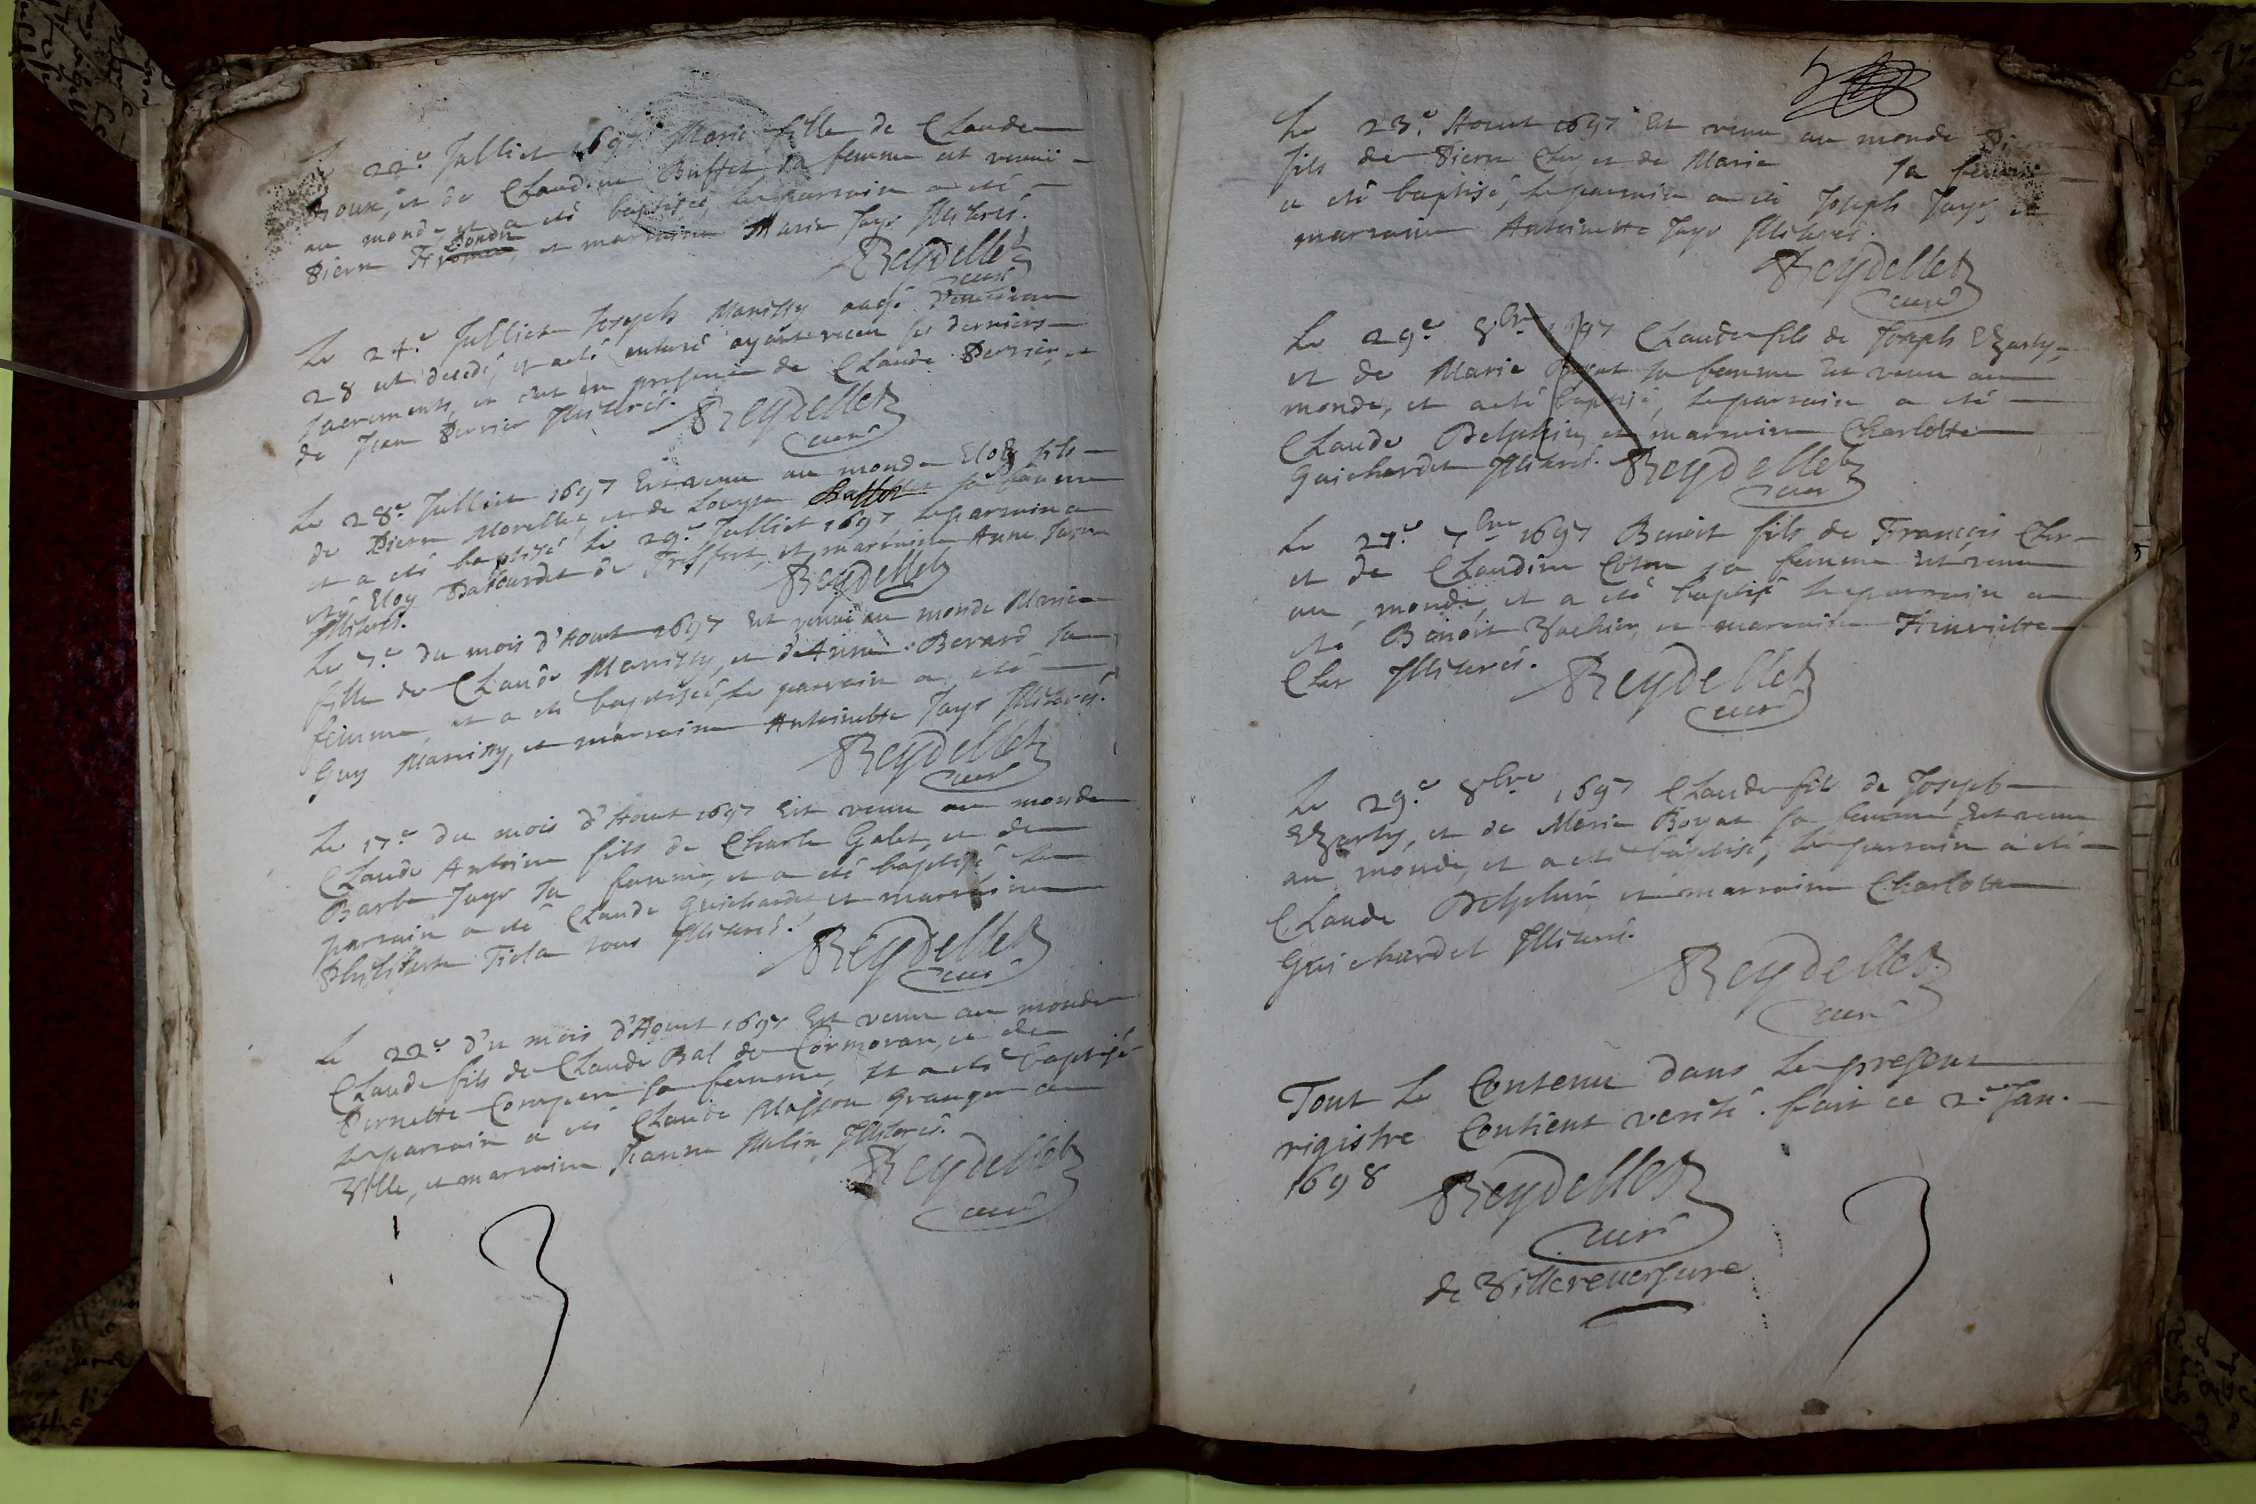 Le 22e Julliet 1697 Marie fille de Claude
et de Claudine Buffet sa femme est venuë
au monde et a eté baptisée, le parrain a eté
Pierre Pondu, et marraine Marie Jayr Illiterés.
Reydellet
curé
Le 24e Julliet Joseph Manissy aagé d'environ
28 est decedé, et a eté enteré ayant receu ses derniers
sacrements, et c'est en presence de Claude Perrier, et
de Jean Perrier Illiterés. Reydellet
curé
Le 28e Julliet 1697 Est venu au monde Eloy fils
de Pierre Morellet, et de Louyse sa femme
et a eté baptisé le 29e Julliet 1697, le parrain a
eté Eloy de Treffort, et marraine Anne
Illiterés. Reydellet
Le 7e du mois d'Aout 1697 Est venuë au monde Marie
fille de Claude Manissy, et d'Anne Berard sa
femme, et a eté baptisée, le parrain a eté
Guy Manissy, et marraine Antoinette Jayr Illiterés.
Reydellet
curé
Le 17e du mois d'Aout 1697 Est venu au monde
Claude Antoine fils de Charle Galet, et de
Barbe Jayr sa femme, et a eté baptisé le
parrain a eté Claude Guichardet, et marraine
Philiberte Tiela tous Illiterés.
Reydellet
curé
Le 22e du mois d'Aout 1697 Est venu au monde
Claude fils de Claude Bal de Cormoran, et de
Pernette Compere sa femme, et a eté baptisé
le parrain a eté Claude Masson Granger a
Ville, et marraine Jeanne Melin Illiterés.
Reydellet
curé
Le 23e Aout 1697 Est venu au monde Pierre
fils de Pierre Cler, et de Marie sa femme
a eté baptisé, le parrain a eté Joseph Jayr, et
marraine Antoinette Jayr Illiterés.
Reydellet
curé
Le 29e 8bre 1697 Claude fils de Joseph Ezarty,
et de Marie Boyat sa femme est venu au
monde, et a eté baptisé, le parrain a eté
Claude Delphin, et marraine Charlotte
Guichardet Illiterés. Reydellet
curé
Le 27e 7bre 1697 Benoit fils de François Cler
et de Claudine Coton sa femme est venu
au monde, et a eté baptisé le parrain a
eté Benoit Vachier, et marraine Henriette
Cler Illiterés. Reydellet
curé
Le 29e 8bre 1697 Claude fils de Joseph
Ezarty, et de Marie Boyat sa femme Est venu
au monde, et a eté baptisé, le parrain a eté
Claude Delphin, et marraine Charlotte
Guichardet Illiterés.
Reydellet
curé
Tout le Contenu dans le present
rigistre Contient verité. fait ce 2e Jan.
1698 Reydellet
curé
de Villereversure